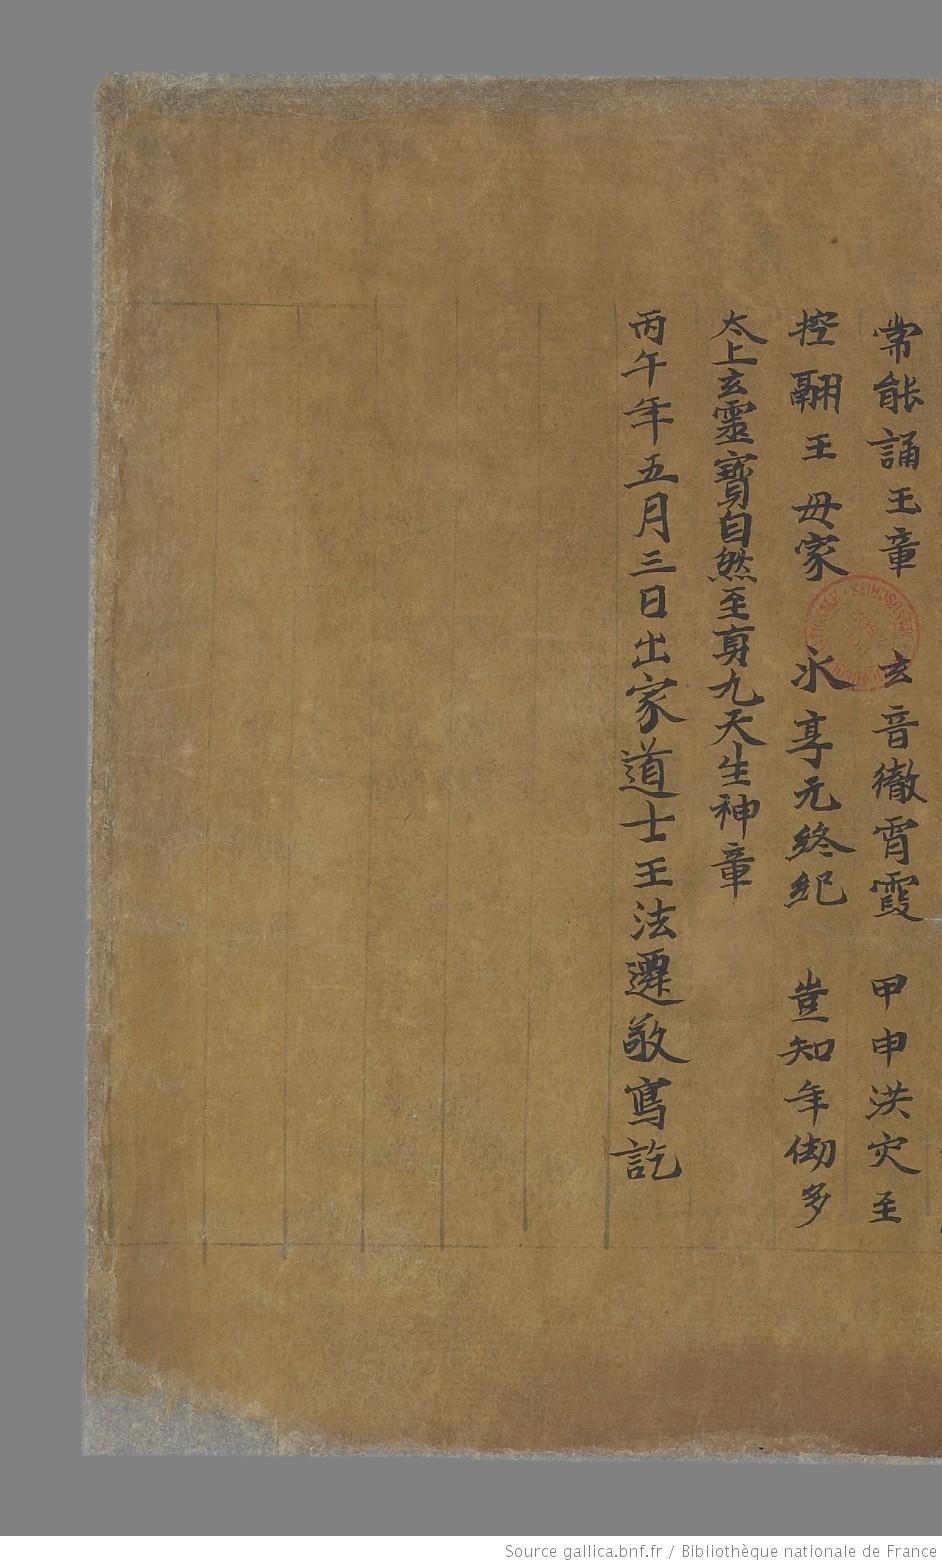 常能誦玉章　玄音徹霄霞　甲申洪灾至
控翮王母家　永享元終紀　豈知年劫多
太上玄靈寶自然至真九天生神章
丙午年五月三日出家道士王法遷敬寫訖
Source gallica.bnf.fr / Bibliothèque nationale de France